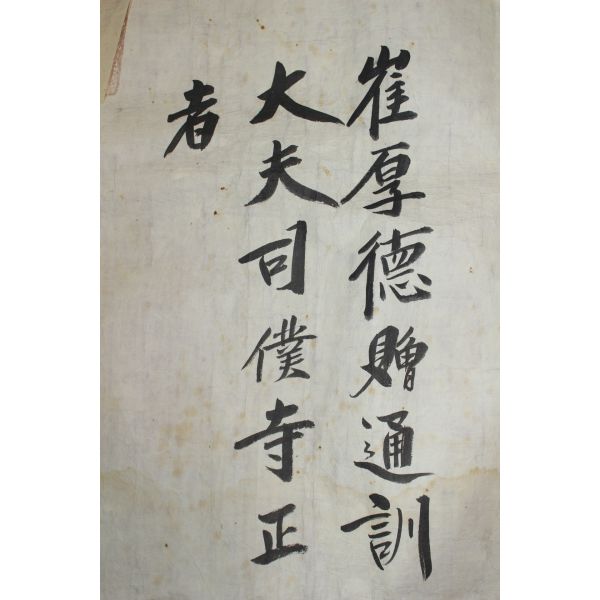 崔厚德贈通訓
大夫司僕寺正
者